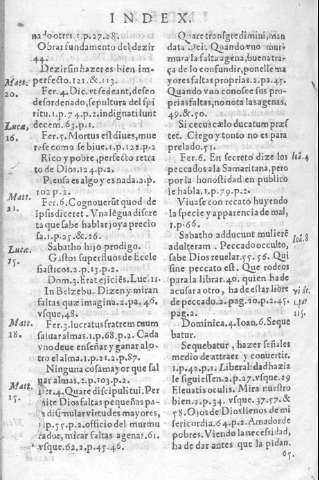 INDEX.
na doctres. 1.p.27.28.
Obras fundamento del dezir
44.
Dezir sin hazer es bien im-
perfecto. 121. & 113.
Matt. 20.
Fer. 4. Dic vt sedeant, deseo
desordenado, sepultura del spi
ritu. 1.p.74.p.2, indignati sunt
decem. 63.p.1.
Luca, 16.
Fer. 5. Mortus est diues, mue
re se como se biue, 1.p.122.p.2
Rico y pobre, perfecto retra
to de Dios, 124.p.2.
Piensa es algo y es nada. 2.p.
102.p.2.
Matt. 21.
Fer. 6. Cognouerūt quod de
ipsis diceret. Vna légua discre
ta que sabe hablar joya precio
sa. 1.p.25. & 26.
Luca. 15.
Sabatho hijo prodigo.
Gastos superfluos de Eccle
siasticos. 2.p.13.p.2.
Dom. 3. Erat eijcies, Luc. 11.
In Belzebu. Dizen y miran
faltas que imagina. 2.pa. 46.
vsque, 48.
Matt. 18.
Fer. 3. lucratus fratrem tuum
saluar almas. 1.p.68.p.2. Cada
vno deue enseñar y ganar al o-
tro el alma. 1.p.21.2.p.87.
Ninguna cosa mayor que sal
uar almas. 1.p.103.p.2.
Matt. 15.
Fer. 4. Quare discipuli tui, Per
mite Dios faltas pequeñas pa-
ra disimular virtudes mayores,
1.p.55.p.2. officio del murmu
rador, mirar faltas agenas. 61.
vsque. 62.2.p.45.46.
Quare transgredimini, man
data Dei. Quando vno mur-
mura la falta agena, buena tra-
ça de lo confundir, ponelle ma
yores faltas proprias. 2.p.45.
Quando vno conosce sus pro-
prias faltas, no nota las agenas,
49. & 50.
Si cecus cæco ducatum præs
tet. Ciego y tonto no es para
prelado. 51.
Fer. 6. En secreto dize los
Ioā. 4
peccados a la Samaritana, pero
por la honostidad en publico
le habla. 1.p.79.p.2.
Viuase con recato huyendo
la specie y apparencia de mal,
1.p.66.
Sabatho adducunt mulierē
Ioā. 8
adulteram. Peccado occulto,
sabe Dios reuelar. 55. 56. Qui
sine peccato est. Que rodeos
para librar. 40. quien ha de
acusar a otro, ha de estar libre
de peccado. 2.pag.10.p.2.45.
113.
Dominica. 4. Ioan. 6. Seque
batur.
Sequebatur, hazer señales
medio de attraer y conuertir.
1.p.42.p.1. Liberalidad hazia
le siguiessem. 2.p.27. vsque. 29
Eleuatis oculis. Mira nuestro
bien. 2.p.34. vsque. 37.57. &
58. Ojos de Dios llenos de mi
sericordia. 64.p.2. Amador de
pobres. Viendo la necessidad,
ha de dar antes que la pidan.
65.